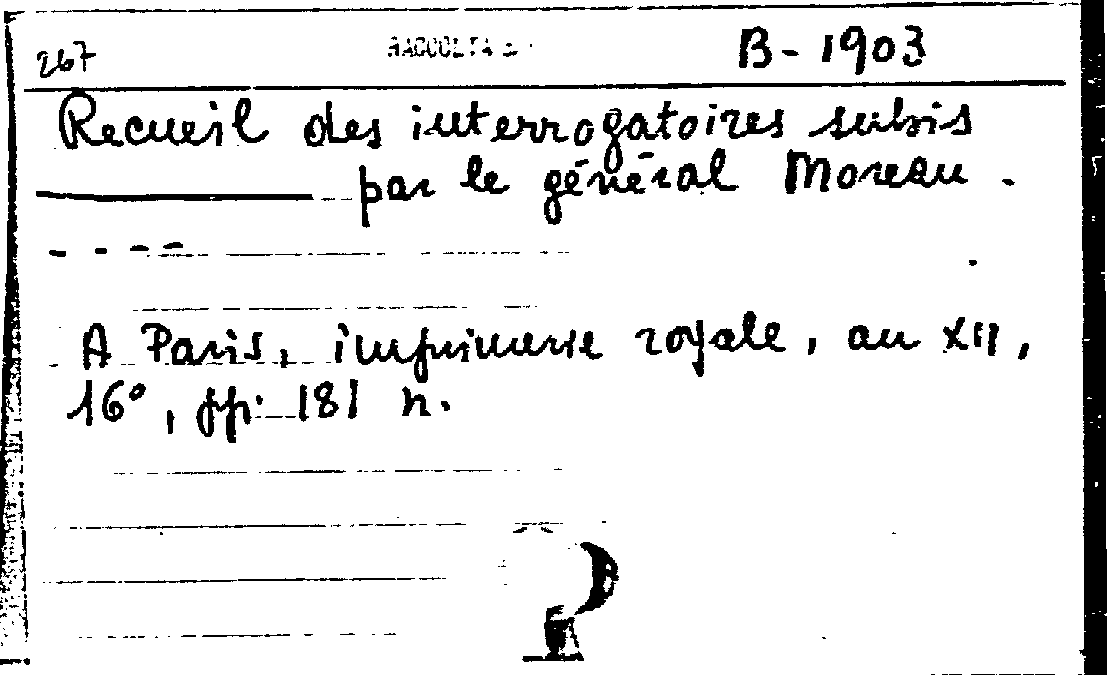 267 RACCOLTA B - 1903
Recueil des interrogatoires subis
par le général Moreau.
A Paris, imprimerie royale, an XII,
16°, pp. 181 n.